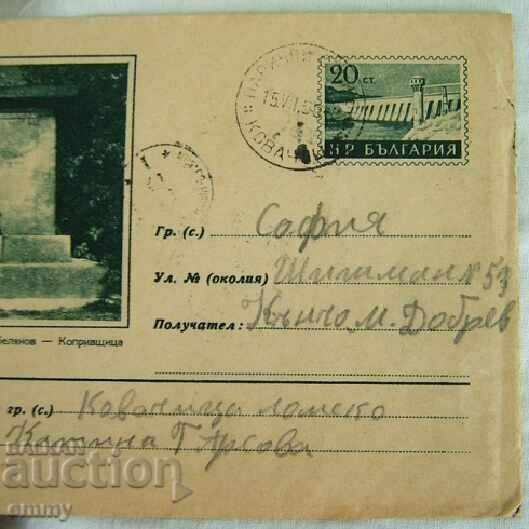 20 СТ.
НР БЪЛГАРИЯ
Гр. (с.) София
Ул. № (околия) Шишман № 53
Получател: Кънчо М. Добрев
белянов — Копривщица
гр. (с.) Ковачица ломско
Катина Г. Арсова
BALKAN
auction
emmy